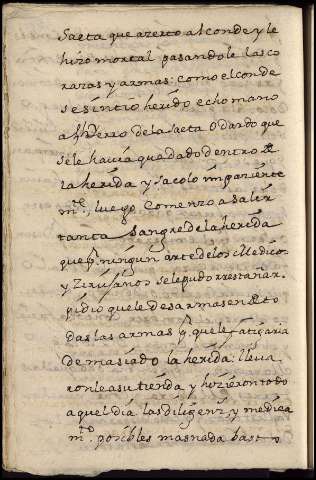 Saeta que azerto al conde y le
hizo mortal pasandole las co
razas y armas: como el conde
se sintio herido echo mano
al hierro de la saeta o dardo que
se le havia quedado dentro de
la herida y sacolo impaziente
mte, luego Comenzo a salir
tanta Sangre de la herida
que pr ningun arte de los Medicos
y Zirujanos se le pudo restañar.
pidio que le desarmasen de to
das las armas pr que le fatigaria
demasiado la herida: lleva
ronle a su tienda y hizieron todo
aquel dia las diligens, y medica
mtos posibles mas nada basto